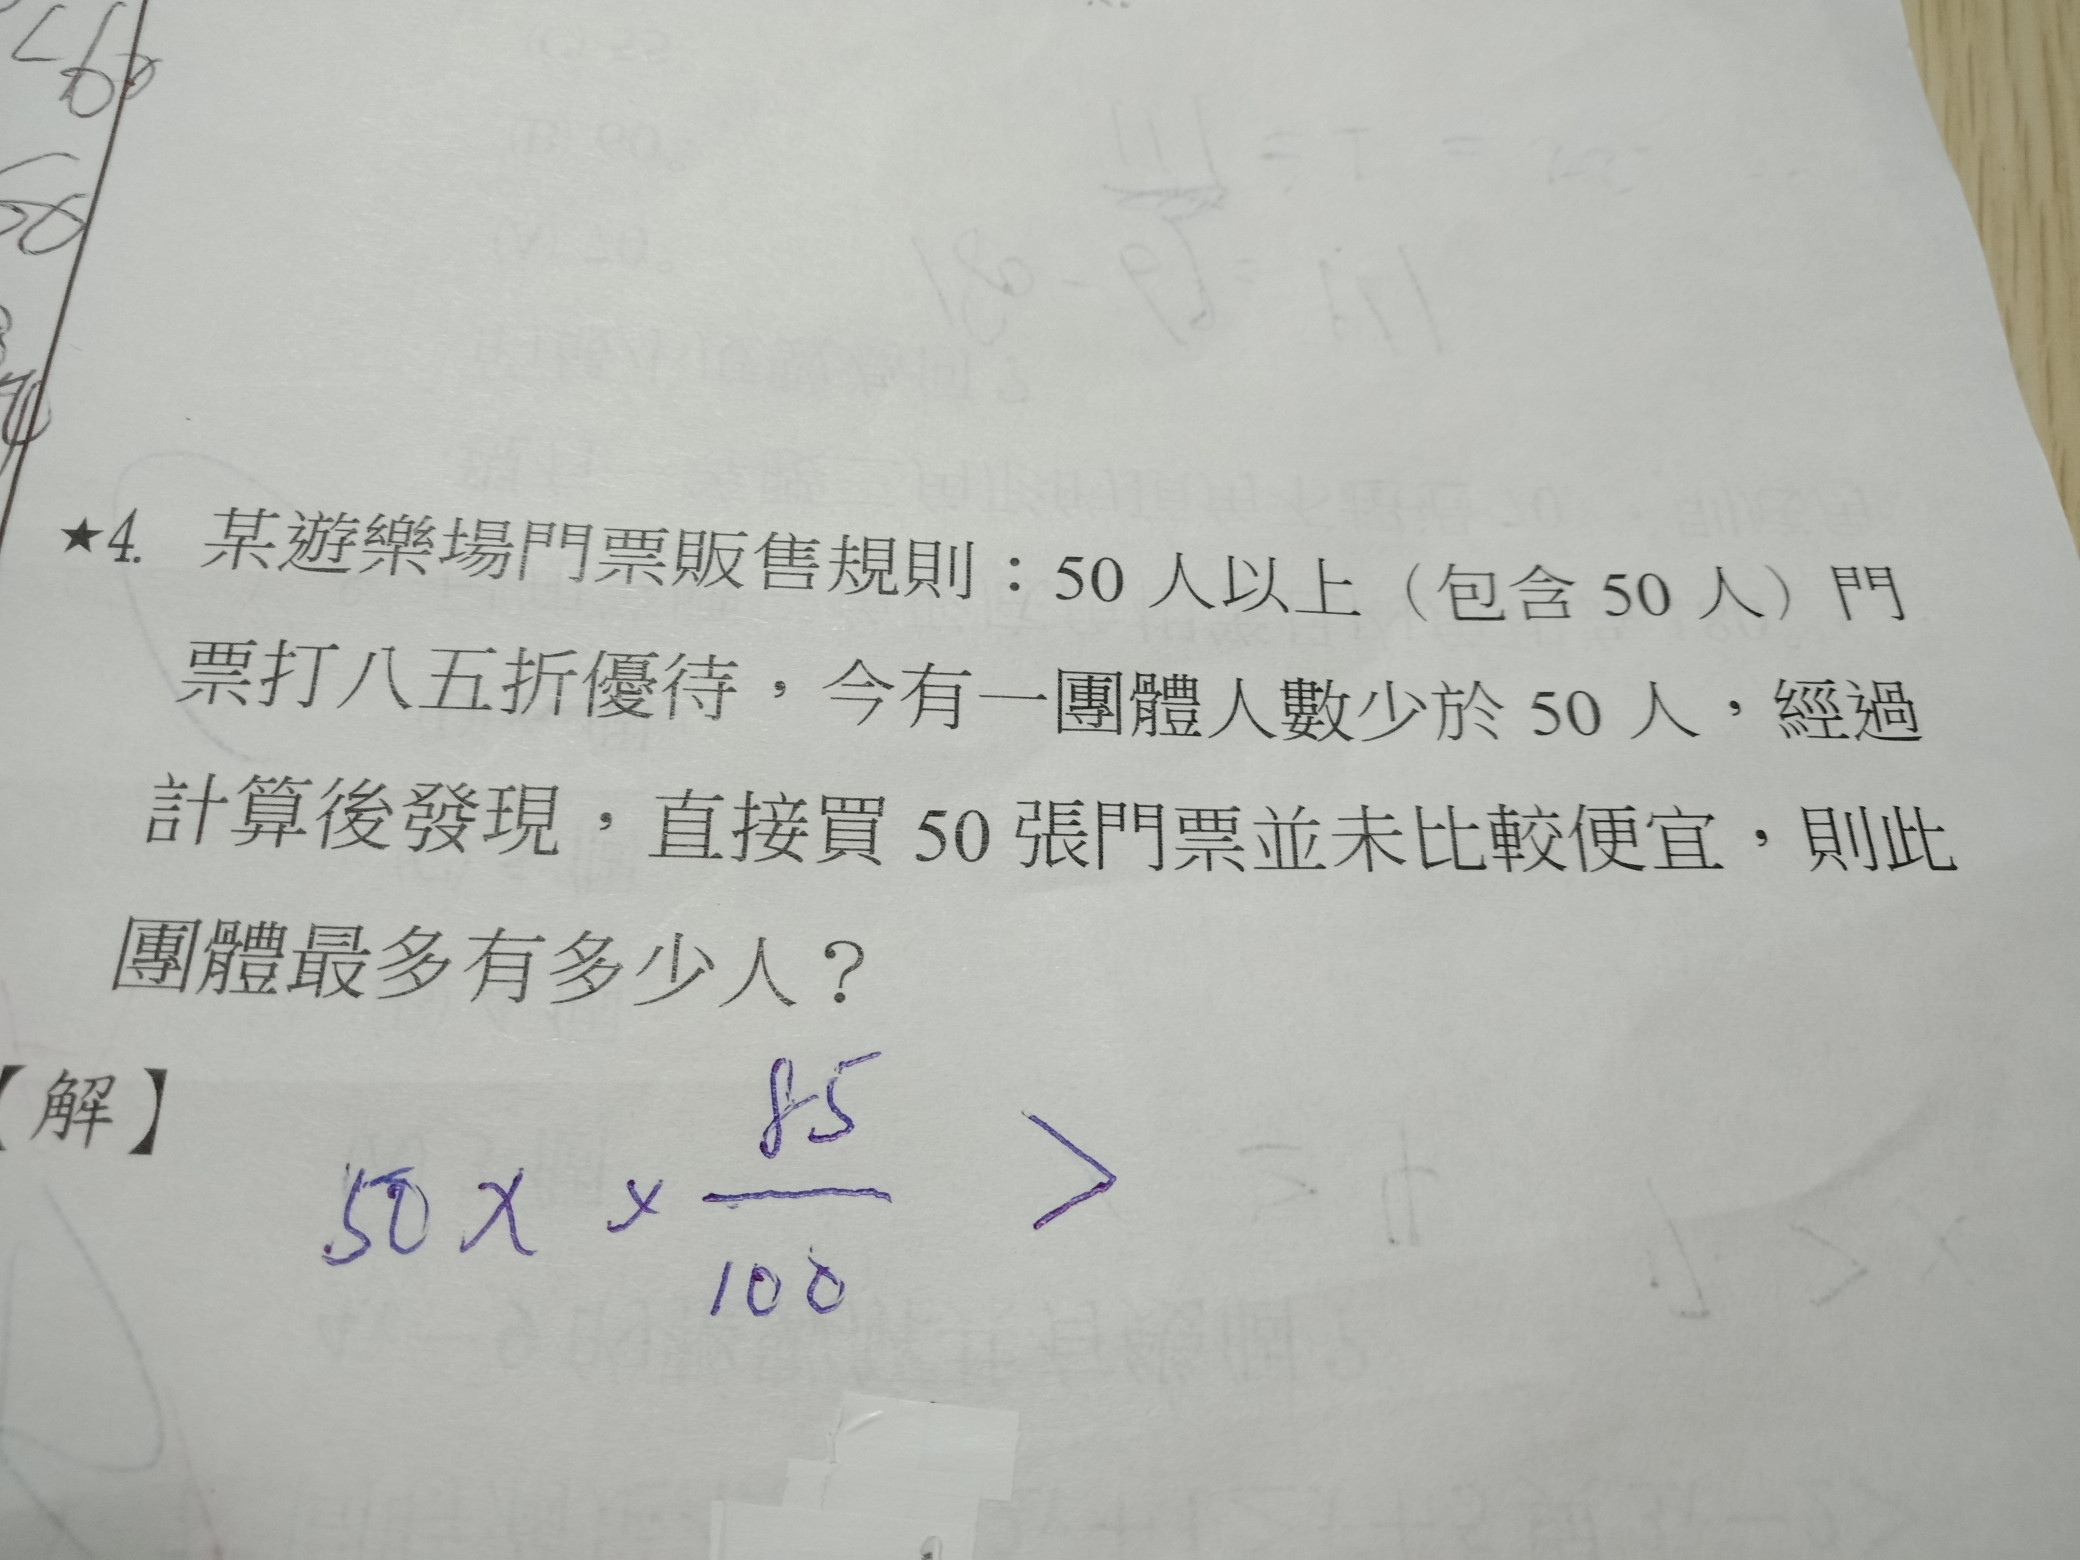 ★4. 某遊樂場門票販售規則：50 人以上（包含 50 人）門
票打八五折優待，今有一團體人數少於 50 人，經過
計算後發現，直接買 50 張門票並未比較便宜，則此
團體最多有多少人？
【解】
50x × 85/100 >